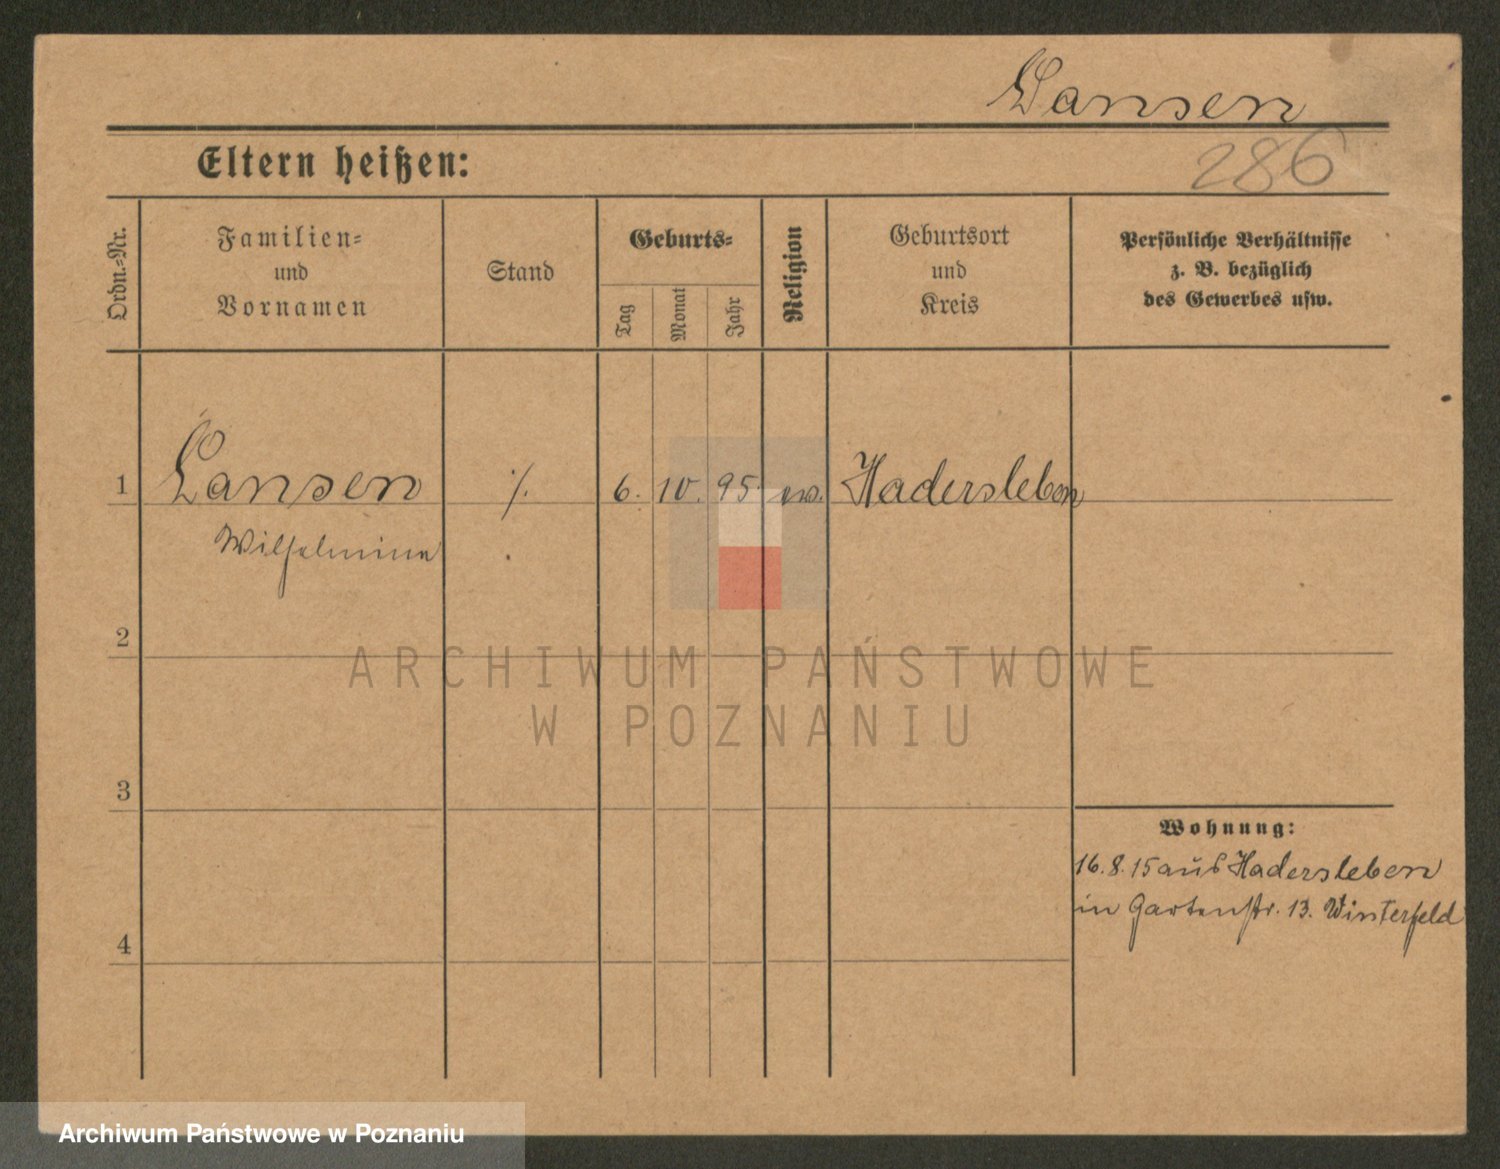 Lansen
286
Eltern heißen:
Ordn.-Nr.
Familien-
und
Vornamen
Stand
Geburts-
Tag
Monat
Jahr
Religion
Geburtsort
und
Kreis
Persönliche Verhältnisse
z. B. bezüglich
des Gewerbes usw.
1 Lansen ./. 6. 10. 95. ev. Hadersleben
Wilhelmine
2
3
4
Wohnung:
16.8.15 aus Hadersleben
in Gartenstr. 13. Winterfeld
ARCHIWUM PAŃSTWOWE
W POZNANIU
Archiwum Państwowe w Poznaniu